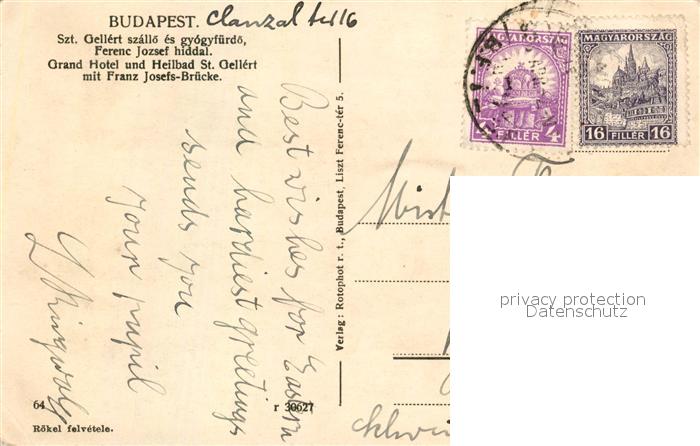 BUDAPEST.
Szt. Gellért szálló és gyógyfürdő,
Ferenc Jozsef hiddal.
Grand Hotel und Heilbad St. Gellért
mit Franz Josefs-Brücke.
Best wishes for Eastern
and hardiest greetings
sends you
Your pupil
64
r 30627
Rökel felvétele.
Verlag: Rotophot r. t., Budapest, Liszt Ferenc-tér 5.
MAGYARORSZÁG
4 FILLÉR 4
MAGYARORSZÁG
16 FILLÉR 16
privacy protection
Datenschutz